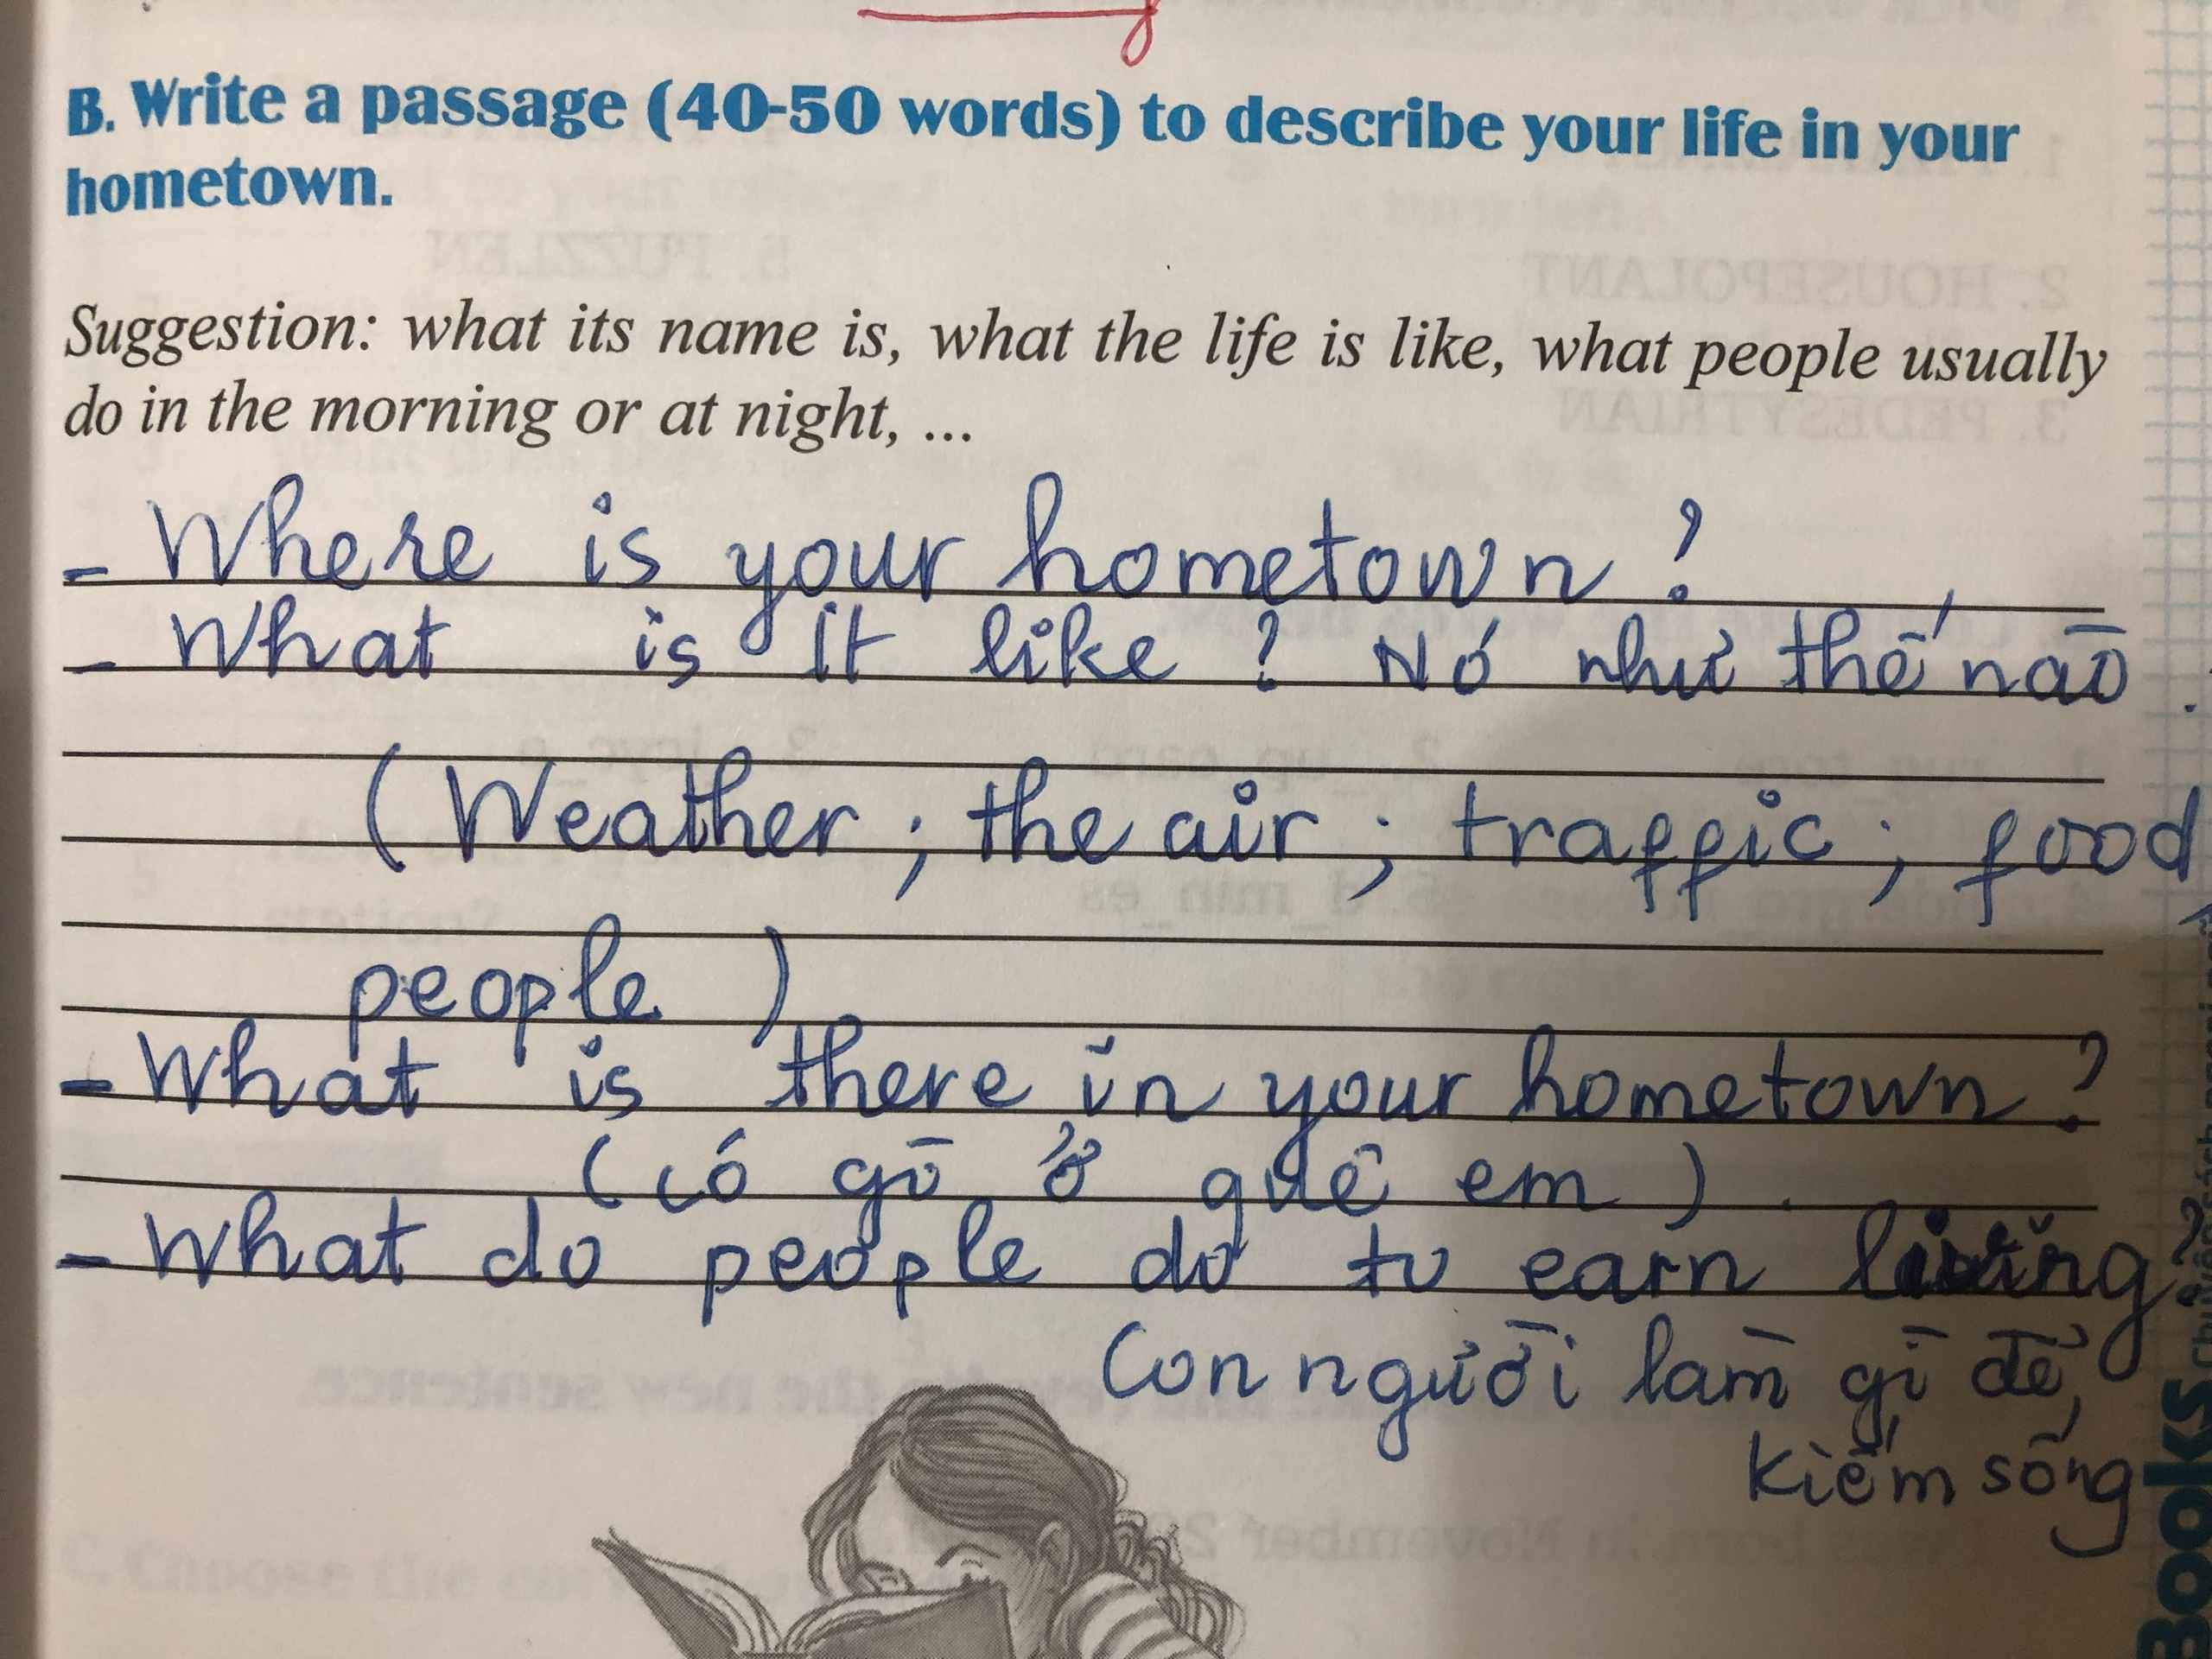 B. Write a passage (40-50 words) to describe your life in your
hometown.
Suggestion: what its name is, what the life is like, what people usually
do in the morning or at night, ...
- Where is your hometown?
- What is it like? Nó như thế nào.
(Weather; the air; traffic; food
people)
- What is there in your hometown?
(có gì ở quê em).
- What do people do to earn living?
Con người làm gì để
kiếm sống
Books